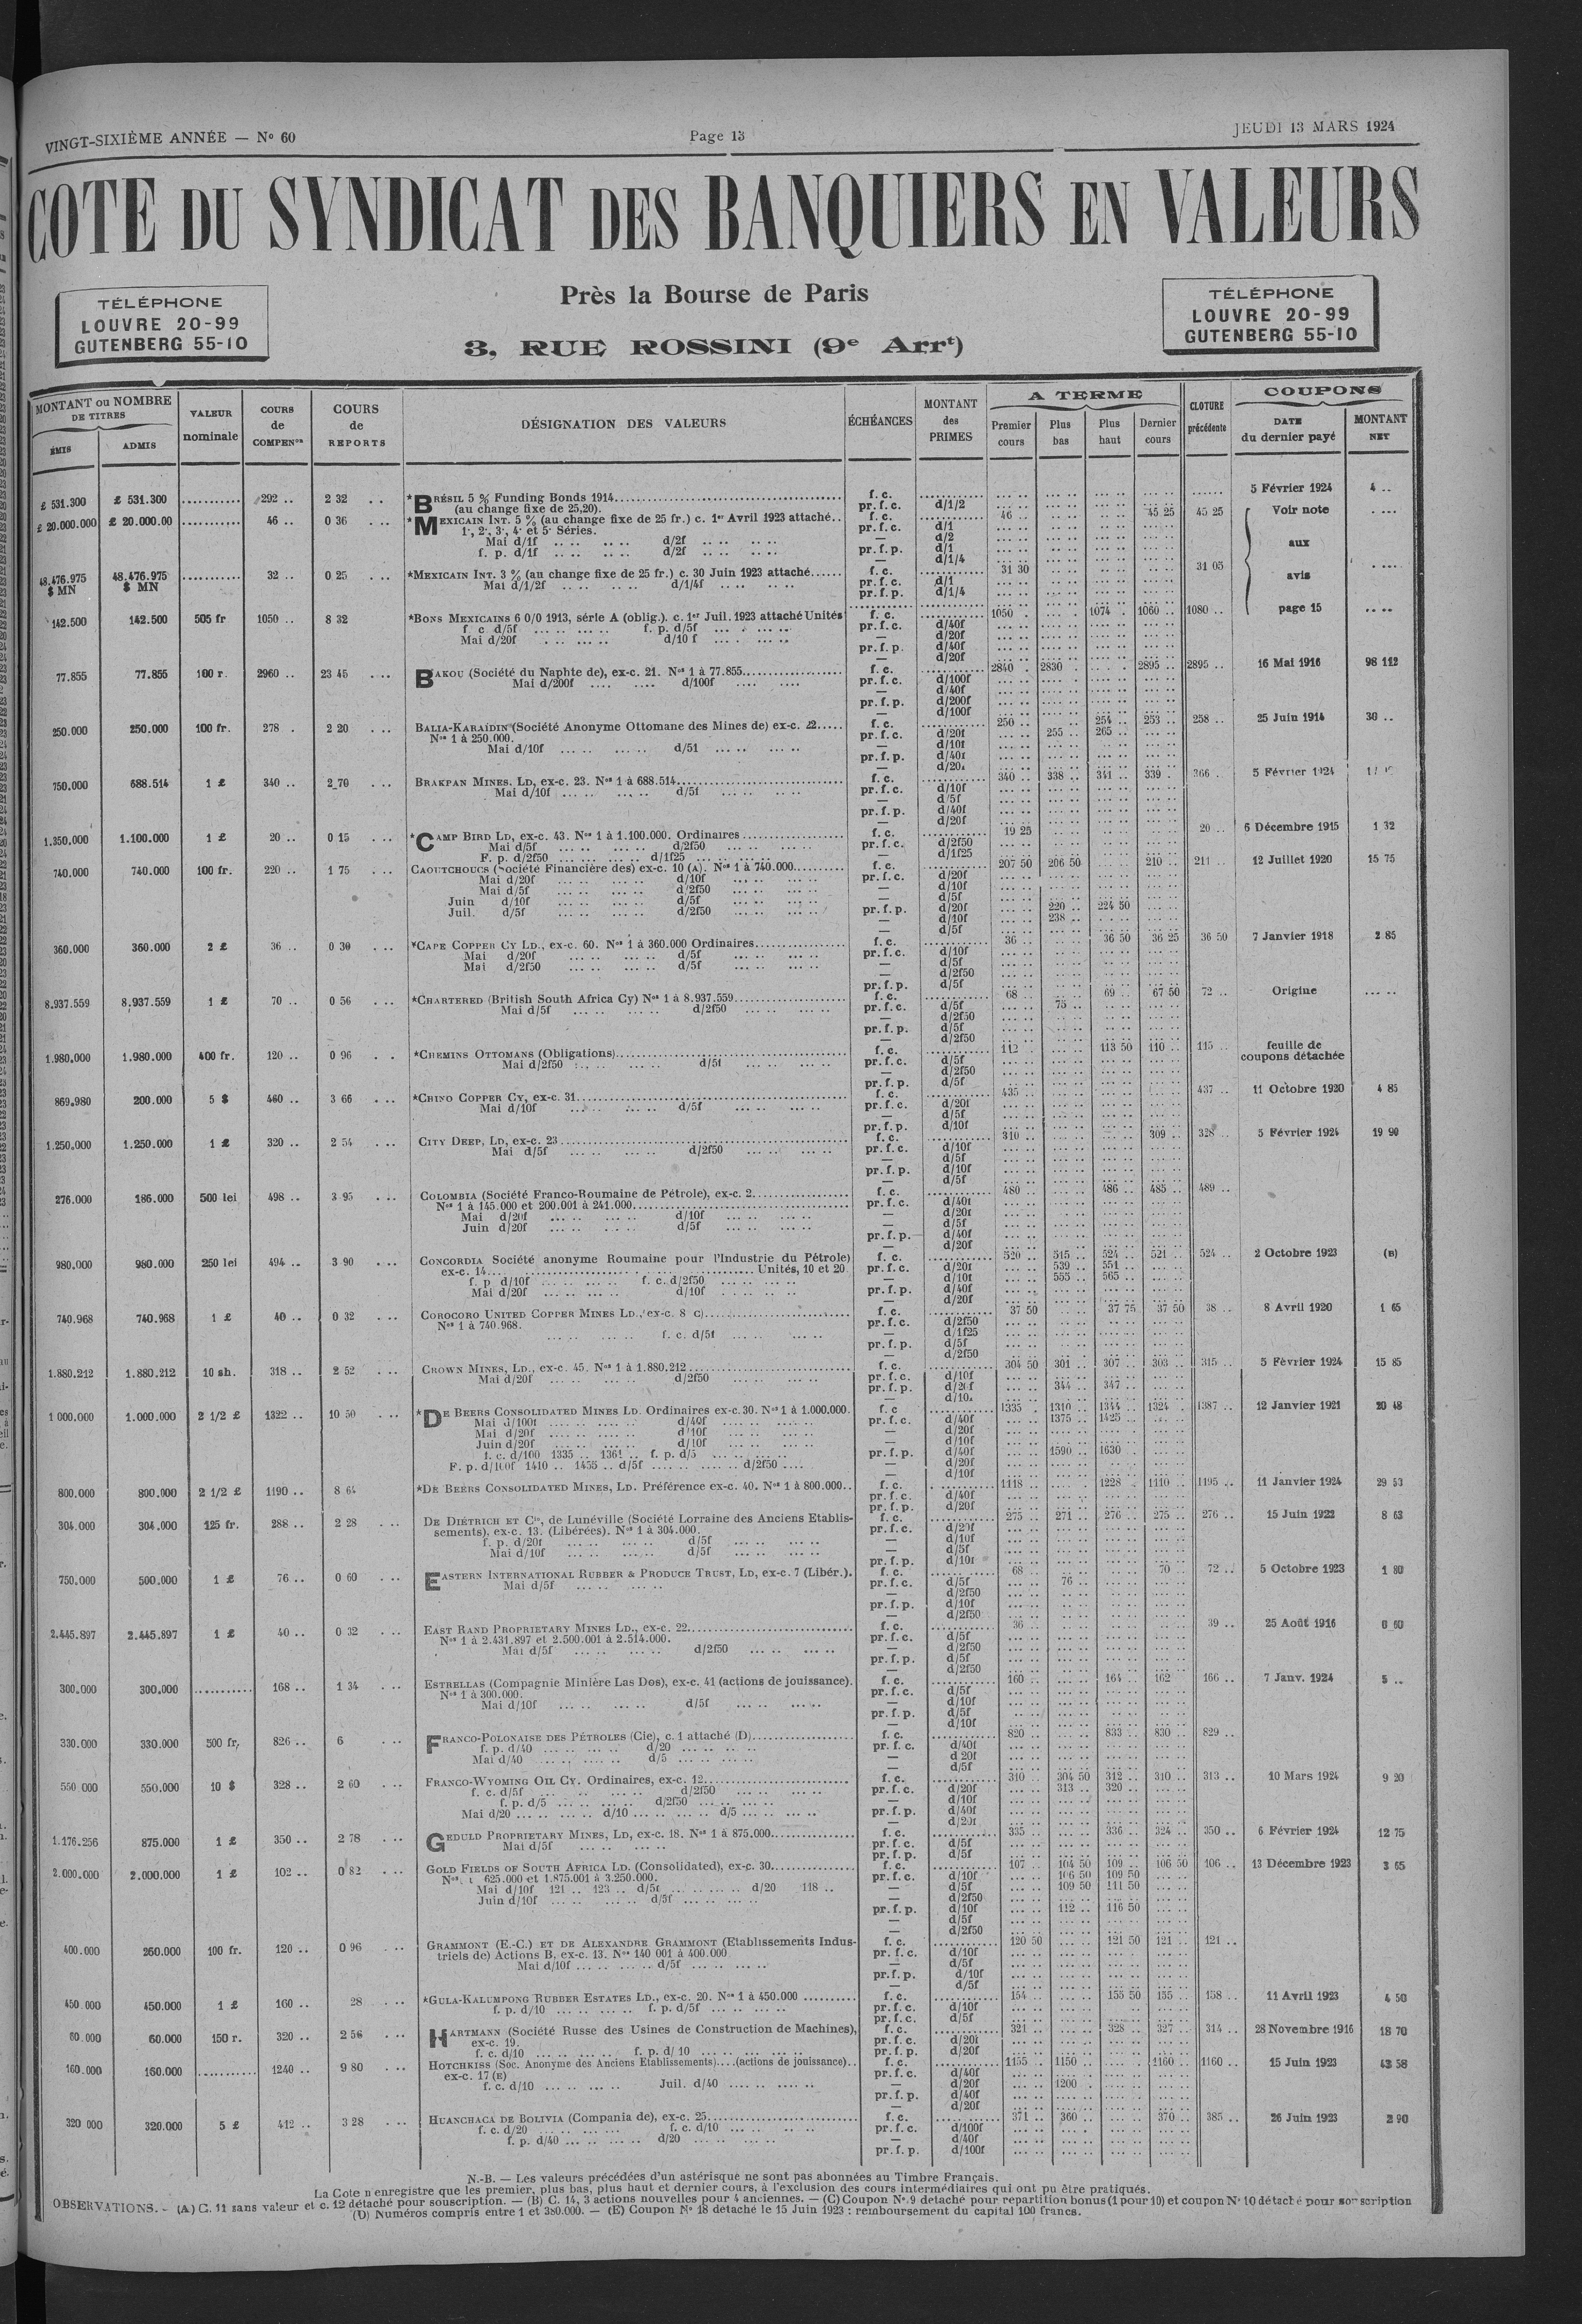 VINGT-SIXIÈME ANNÉE — Nº 60 Page 13 JEUDI 13 MARS 1924
COTE DU SYNDICAT DES BANQUIERS EN VALEURS
Près la Bourse de Paris
3, RUE ROSSINI (9e Arrt)
TÉLÉPHONE
LOUVRE 20-99
GUTENBERG 55-10
TÉLÉPHONE
LOUVRE 20-99
GUTENBERG 55-10
MONTANT ou NOMBRE DE TITRES
ÉMIS ADMIS
VALEUR nominale
COURS de COMPENon
COURS de REPORTS
DÉSIGNATION DES VALEURS
ÉCHÉANCES
MONTANT des PRIMES
A TERME
Premier cours Plus bas Plus haut Dernier cours
CLOTURE précédente
COUPONS
DATE du dernier payé MONTANT NET
£ 531.300 £ 531.300 292 .. 2 32 *BRÉSIL 5 % Funding Bonds 1914 f. c. 5 Février 1924 4 ..
(au change fixe de 25,20). pr. f. c. d/1/2
£ 20.000.000 £ 20.000.00 46 .. 0 36 *MEXICAIN INT. 5 % (au change fixe de 25 fr.) c. 1er Avril 1923 attaché.. f. c. 46 .. 45 25 45 25 Voir note aux avis page 15
1e, 2e, 3e, 4e et 5e Séries. pr. f. c. d/1
Mai d/1f d/2f — d/2
f. p. d/1f d/2f pr. f. p. d/1
— d/1/4
48.476.975 $ MN 48.476.975 $ MN 32 .. 0 25 *MEXICAIN INT. 3 % (au change fixe de 25 fr.) c. 30 Juin 1923 attaché f. c. 31 30 31 05
Mai d/1/2f d/1/4f pr. f. c. d/1
pr. f. p. d/1/4
142.500 142.500 505 fr 1050 .. 8 32 *BONS MEXICAINS 6 0/0 1913, série A (oblig.). c. 1er Juil. 1923 attaché Unités f. c. 1050 1074 1060 .. 1080 ..
f. c d/5f f. p. d/5f pr. f. c. d/40f
Mai d/20f d/10 f — d/20f
pr. f. p. d/40f
— d/20f
77.855 77.855 100 r. 2960 .. 23 45 BAKOU (Société du Naphte de), ex-c. 21. Nos 1 à 77.855 f. c. 2840 2830 2895 .. 2895 .. 16 Mai 1916 98 112
Mai d/200f d/100f pr. f. c. d/100f
— d/40f
pr. f. p. d/200f
— d/100f
250.000 250.000 100 fr. 278 . 2 20 BALIA-KARAÏDIN (Société Anonyme Ottomane des Mines de) ex-c. 22 f. c. 250 .. 254 .. 253 .. 258 .. 25 Juin 1914 30 ..
Nos 1 à 250.000. pr. f. c. d/20f 255 .. 265 ..
Mai d/10f — d/10f
pr. f. p. d/40f
750.000 688.514 1 £ 340 .. 2 70 BRAKPAN MINES. LD, ex-c. 23. Nos 1 à 688.514 f. c. 340 .. 338 .. 341 .. 339 . 366 . 5 Février 1924
Mai d/10f d/5f pr. f. c. d/10f
— d/5f
pr. f. p. d/40f
— d/20f
1.350.000 1.100.000 1 £ 20 .. 0 15 *CAMP BIRD LD, ex-c. 43. Nos 1 à 1.100.000. Ordinaires f. c. 19 25 20 .. 6 Décembre 1915 1 32
Mai d/5f d/2f50 pr. f. c. d/2f50
F. p. d/2f50 d/1f25 — d/1f25
740.000 740.000 100 fr. 220 .. 1 75 CAOUTCHOUCS (Société Financière des) ex-c. 10 (A). Nos 1 à 740.000 f. c. 207 50 206 50 210 .. 211 .. 12 Juillet 1920 15 75
Mai d/20f d/10f pr. f. c. d/20f
Mai d/5f d/2f50 — d/10f
Juin d/10f d/5f — d/5f
Juil. d/5f d/2f50 pr. f. p. d/20f 220 .. 224 50
— d/10f 238 ..
— d/5f
360.000 360.000 2 £ 36 .. 0 30 *CAPE COPPER CY LD., ex-c. 60. Nos 1 à 360.000 Ordinaires f. c. 36 .. 36 50 36 25 36 50 7 Janvier 1918 2 85
Mai d/20f d/5f pr. f. c. d/10f
Mai d/2f50 d/5f — d/5f
— d/2f50
pr. f. p. d/5f
8.937.559 8.937.559 1 £ 70 .. 0 56 *CHARTERED (British South Africa Cy) Nos 1 à 8.937.559 f. c. 68 .. 69 .. 67 50 72 .. Origine
Mai d/5f d/2f50 pr. f. c. d/5f 75 ..
— d/2f50
pr. f. p. d/5f
— d/2f50
1.980.000 1.980.000 400 fr. 120 .. 0 96 *CHEMINS OTTOMANS (Obligations) f. c. 112 113 50 110 .. 115 .. feuille de coupons détachée
Mai d/2f50 d/5f pr. f. c. d/5f
— d/2f50
pr. f. p. d/5f
869.980 200.000 5 $ 460 .. 3 66 *CHINO COPPER CY, ex-c. 31 f. c. 435 437 .. 11 Octobre 1920 4 85
Mai d/10f d/5f pr. f. c. d/20f
— d/5f
pr. f. p. d/10f
1.250.000 1.250.000 1 £ 320 .. 2 54 CITY DEEP, LD, ex-c. 23 f. c. 310 .. 309 .. 328 .. 5 Février 1924 19 90
Mai d/5f d/2f50 pr. f. c. d/10f
— d/5f
pr. f. p. d/10f
— d/5f
276.000 186.000 500 lei 498 .. 3 95 COLOMBIA (Société Franco-Roumaine de Pétrole), ex-c. 2 f. c. 480 .. 486 .. 485 .. 489 ..
Nos 1 à 145.000 et 200.001 à 241.000 pr. f. c. d/40f
Mai d/20f d/10f — d/20f
Juin d/20f d/5f — d/5f
pr. f. p. d/40f
— d/20f
980.000 980.000 250 lei 494 .. 3 90 CONCORDIA Société anonyme Roumaine pour l'Industrie du Pétrole) f. c. 520 .. 515 .. 524 .. 521 .. 524 .. 2 Octobre 1923 (B)
ex-c. 14 Unités, 10 et 20 pr. f. c. d/20f 539 .. 551 ..
f. p d/10f f. c. d/2f50 — d/10f 555 .. 565 ..
Mai d/20f d/10f pr. f. p. d/40f
— d/20f
740.968 740.968 1 £ 40 .. 0 32 COROCORO UNITED COPPER MINES LD., ex-c. 8 C) f. c. 37 50 37 75 37 50 38 .. 8 Avril 1920 1 65
Nos 1 à 740.968. pr. f. c. d/2f50
f. c. d/5f — d/1f25
pr. f. p. d/5f
— d/2f50
1.880.212 1.880.212 10 sh. 318 .. 2 52 CROWN MINES, LD., ex-c. 45. Nos 1 à 1.880.212 f. c. 304 50 301 .. 307 .. 303 .. 315 .. 5 Février 1924 15 85
Mai d/20f d/2f50 pr. f. c. d/10f
pr. f. p. d/20f 344 .. 347 ..
1 000.000 1.000.000 2 1/2 £ 1322 .. 10 50 *DE BEERS CONSOLIDATED MINES LD. Ordinaires ex-c. 30. Nos 1 à 1.000.000. f. c 1335 . 1310 .. 1344 .. 1324 .. 1387 .. 12 Janvier 1921 20 48
Mai d/100f d/40f pr. f. c. d/40f 1375 .. 1425 ..
Mai d/20f d/10f — d/20f
Juin d/20f d/10f — d/10f
f. c. d/100 1335 .. 1361 .. f. p. d/5 pr. f. p. d/40f 1590 .. 1630 ..
F. p. d/100f 1410 .. 1455 .. d/5f d/2f50 — d/20f
— d/10f
800.000 800.000 2 1/2 £ 1190 .. 8 64 *DE BEERS CONSOLIDATED MINES, LD. Préférence ex-c. 40. Nos 1 à 800.000.. f. c. 1118 .. 1228 .. 1110 .. 1195 .. 11 Janvier 1924 29 53
pr. f. c. d/40f
pr. f. p. d/20f
304.000 304.000 125 fr. 288 .. 2 28 DE DIÉTRICH ET Cie, de Lunéville (Société Lorraine des Anciens Etablis- f. c. 275 .. 271 .. 276 .. 275 .. 276 .. 15 Juin 1922 8 63
sements), ex-c. 13. (Libérées). Nos 1 à 304.000. pr. f. c. d/20f
f. p. d/20f d/5f — d/10f
Mai d/10f d/5f — d/5f
pr. f. p. d/10f
750.000 500.000 1 £ 76 .. 0 60 EASTERN INTERNATIONAL RUBBER & PRODUCE TRUST, LD, ex-c. 7 (Libér.). f. c. 68 .. 70 .. 72 .. 5 Octobre 1923 1 80
Mai d/5f pr. f. c. d/5f 76 ..
— d/2f50
pr. f. p. d/10f
— d/2f50
2.445.897 2.445.897 1 £ 40 .. 0 32 EAST RAND PROPRIETARY MINES LD., ex-c. 22 f. c. 36 .. 39 .. 25 Août 1916 6 60
Nos 1 à 2.431.897 et 2.500.001 à 2.514.000. pr. f. c. d/5f
Mai d/5f d/2f50 — d/2f50
pr. f. p. d/5f
— d/2f50
300.000 300.000 168 .. 1 34 ESTRELLAS (Compagnie Minière Las Dos), ex-c. 41 (actions de jouissance). f. c. 160 164 .. 162 166 .. 7 Janv. 1924 5 ..
Nos 1 à 300.000. pr. f. c. d/5f
Mai d/10f d/5f — d/10f
pr. f. p. d/5f
— d/10f
330.000 330.000 500 fr. 826 .. 6 FRANCO-POLONAISE DES PÉTROLES (Cie), c. 1 attaché (D) f. c. 820 833 .. 830 .. 829 ..
f. p. d/40 d/20 pr. f. c. d/40f
Mai d/40 d/5 — d 20f
— d/5f
550 000 550.000 10 $ 328 .. 2 60 FRANCO-WYOMING OIL CY. Ordinaires, ex-c. 12 f. c. 310 .. 304 50 312 .. 310 .. 313 .. 10 Mars 1924 9 20
f. c. d/5f d/2f50 pr. f. c. d/20f 313 .. 320 ..
f. p. d/5 d/2f50 — d/10f
Mai d/20 d/10 d/5 pr. f. p. d/40f
— d/20f
1.176.256 875.000 1 £ 350 .. 2 78 GEDULD PROPRIETARY MINES, LD, ex-c. 18. Nos 1 à 875.000 f. c. 335 .. 336 .. 324 .. 350 .. 6 Février 1924 12 75
Mai d/5f pr. f. c. d/5f
pr. f. p. d/5f
2.000.000 2.000.000 1 £ 102 .. 0 82 GOLD FIELDS OF SOUTH AFRICA LD. (Consolidated), ex-c. 30 f. c. 107 104 50 109 .. 106 50 106 .. 13 Décembre 1923 3 65
625.000 et 1.875.001 à 3.250.000. pr. f. c. d/10f 106 50 109 50
Mai d/10f 121 .. 123 .. d/5f d/20 118 .. — d/5f 109 50 111 50
Juin d/10f d/5f — d/2f50
pr. f. p. d/10f 112 .. 116 50
— d/5f
— d/2f50
400.000 260.000 100 fr. 120 .. 0 96 GRAMMONT (E.-C.) ET DE ALEXANDRE GRAMMONT (Etablissements Indus- f. c. 120 50 121 50 121 .. 121 ..
triels de) Actions B, ex-c. 13. Nos 140 001 à 400.000 pr. f. c. d/10f
Mai d/10f d/5f — d/5f
pr. f. p. d/10f
— d/5f
450 000 450.000 1 £ 160 .. 28 *GULA-KALUMPONG RUBBER ESTATES LD., ex-c. 20. Nos 1 à 450.000 f. c. 154 155 50 155 .. 158 .. 11 Avril 1923 4 50
f. p. d/10 f. p. d/5f pr. f. c. d/10f
pr. f. c. d/5f
60.000 60.000 150 r. 320 .. 2 56 HARTMANN (Société Russe des Usines de Construction de Machines), f. c. 321 328 .. 327 .. 314 .. 28 Novembre 1916 18 70
ex-c. 19. pr. f. c. d/20f
f. c. d/10 f. p. d/ 10 pr. f. p. d/20f
160.000 160.000 1240 .. 9 80 HOTCHKISS (Soc. Anonyme des Anciens Etablissements)....(actions de jouissance).. f. c. 1155 .. 1150 .. 1160 .. 1160 .. 15 Juin 1923 43 58
ex-c. 17 (E) pr. f. c. d/40f
f. c. d/10 Juil. d/40 — d/20f 1200 .
pr. f. p. d/40f
— d/20f
320 000 320.000 5 £ 412 .. 3 28 HUANCHACA DE BOLIVIA (Compania de), ex-c. 25 f. c. 371 .. 360 .. 370 .. 385 .. 26 Juin 1923 2 90
f. c. d/20 f. c. d/10 pr. f. c. d/100f
f. p. d/40 d/20 — d/40f
pr. f. p. d/100f
N.-B. — Les valeurs précédées d'un astérisque ne sont pas abonnées au Timbre Français.
La Cote n enregistre que les premier, plus bas, plus haut et dernier cours, à l'exclusion des cours intermédiaires qui ont pu être pratiqués.
OBSERVATIONS. - (A) C. 11 sans valeur et c. 12 détaché pour souscription. — (B) C. 14, 3 actions nouvelles pour 4 anciennes. — (C) Coupon Nº 9 detaché pour repartition bonus (1 pour 10) et coupon Nº 10 détaché pour souscription
(D) Numéros compris entre 1 et 380.000. — (E) Coupon Nº 18 detaché le 15 Juin 1923 : remboursement du capital 100 francs.